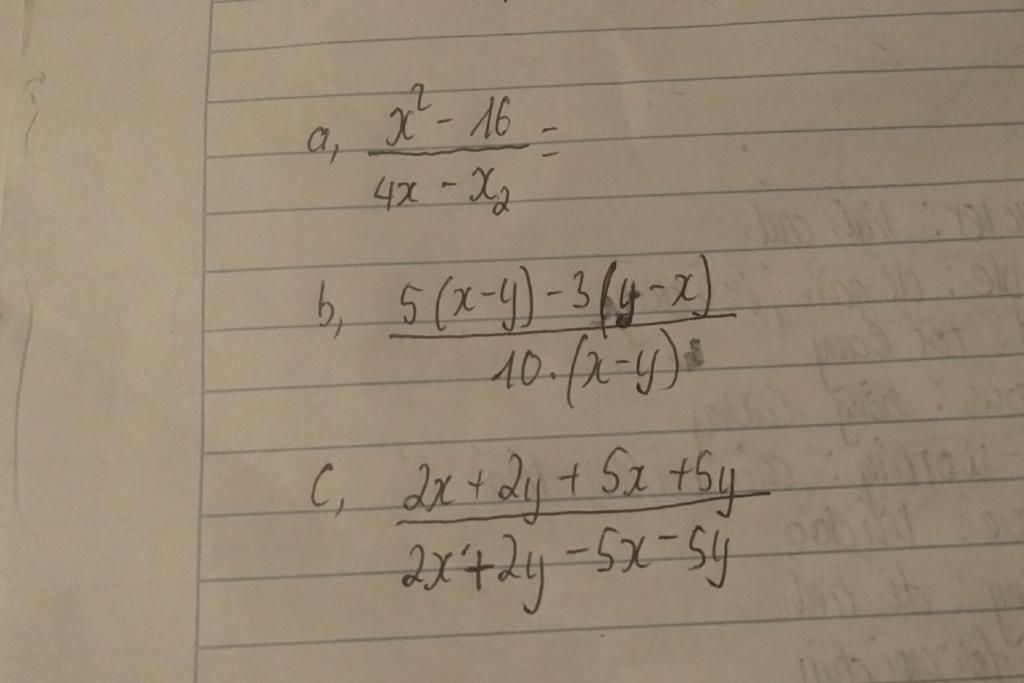 a, \frac{x^2 - 16}{4x - x_2} =
b, \frac{5(x-y) - 3(y-x)}{10.(x-y)}
c, \frac{2x + 2y + 5x + 5y}{2x + 2y - 5x - 5y}